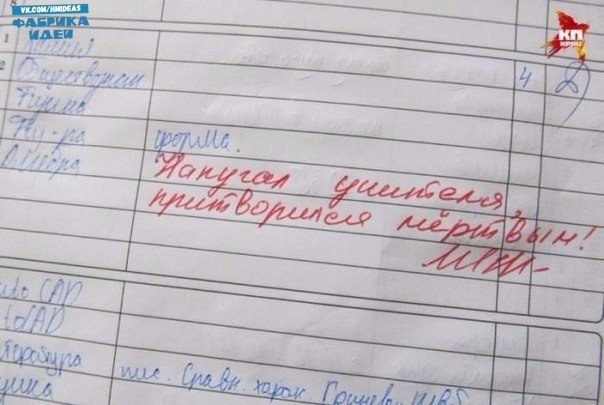 VK.COM/HMIDEAS
ФАБРИКА
ИДЕЙ
КП
1 Химия
2 Обществозн 4
Физ-ра форма.
Алгебра
Напугал учителя,
притворился мёртвым!
Литература пис. Сравн. харак. Гринева и Швб.